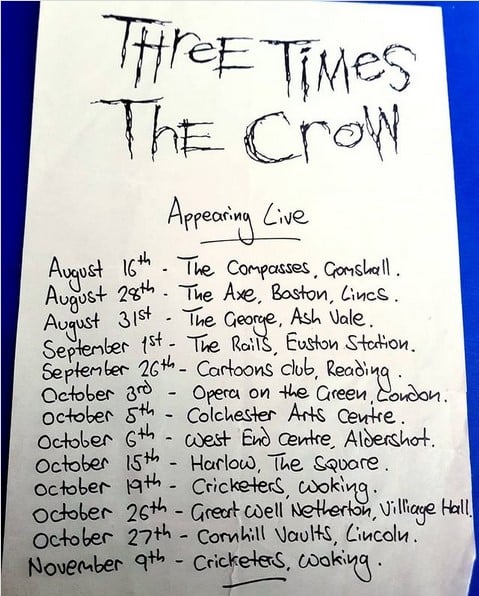 THree TiMes
THE CroW
Appearing Live
August 16th - The Compasses, Gomshall.
August 28th - The Axe, Boston, Lincs.
August 31st - The George, Ash Vale.
September 1st - The Rails, Euston Station.
September 26th - Cartoons club, Reading.
October 3rd - Opera on the Green, London.
October 5th - Colchester Arts Centre.
October 6th - West End Centre, Aldershot.
October 15th - Harlow, The Square.
October 19th - Cricketers, Woking.
October 26th - Great Well Netherton, Villiage Hall.
October 27th - Cornhill Vaults, Lincoln.
November 9th - Cricketers, Woking.